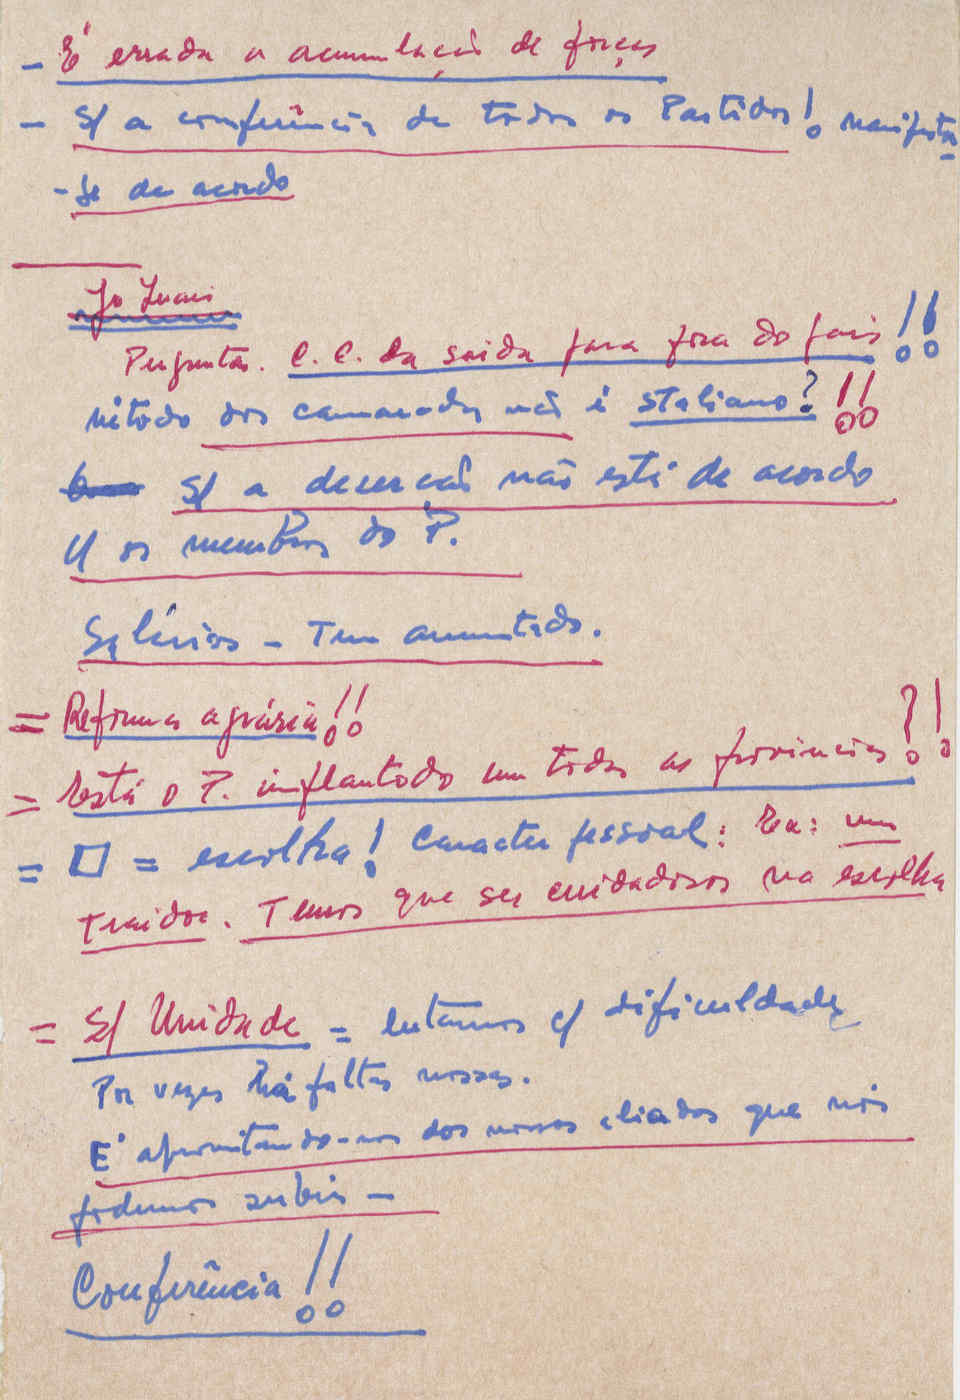 - É errada a acumulação de forças
- S/ a conferência de todos os Partidos! manifesta
- se de acordo
Pergunta. C.C. da saida para fora do pais!!
Método dos camaradas não é staliano?!!
S/ a deserção não está de acordo
c/ os membros do P.
Salários - Tem aumentado.
= Reforma agrária!!
= Está o P. implantado em todas as provincias?!
= □ = escolha! Caracter pessoal: Ex: um
traidor. Temos que ser cuidadosos na escolha
= S/ Unidade = lutamos c/ dificuldade
Por vezes há faltas nossas.
É aproveitando-nos dos nossos aliados que nós
podemos subir -
Conferência!!